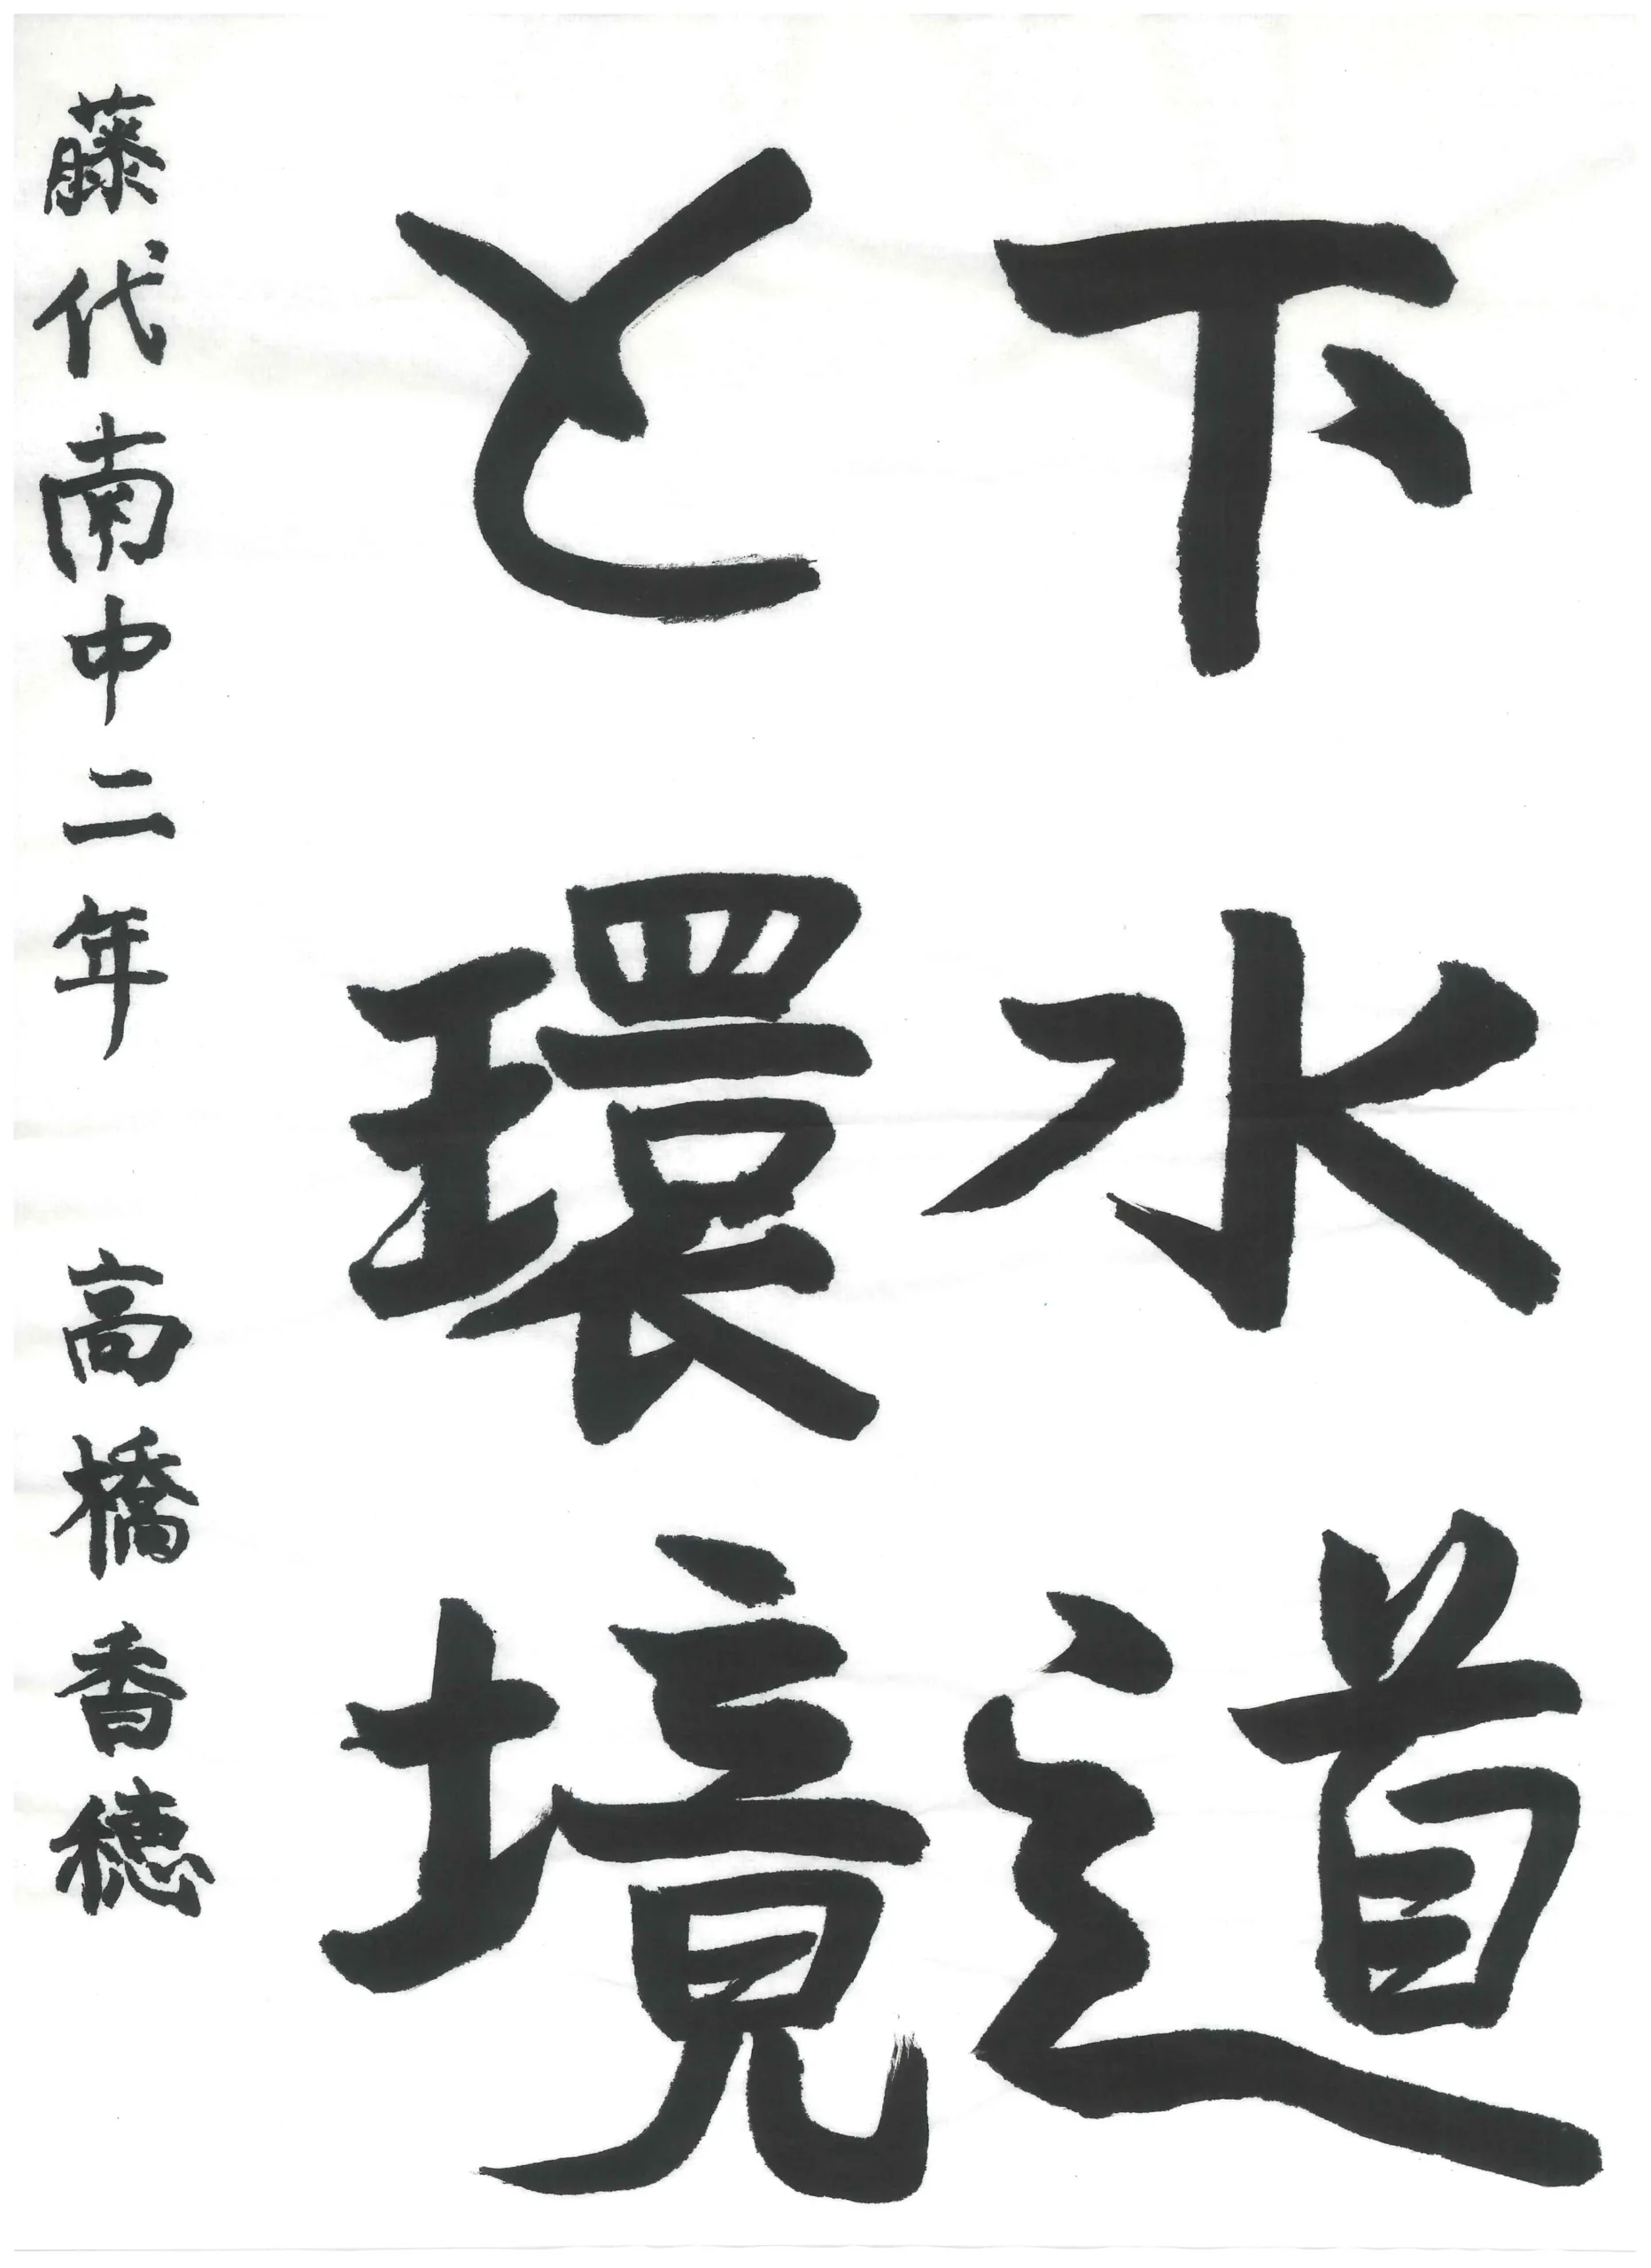 下水道
と環境
藤代南中二年 高橋香穂